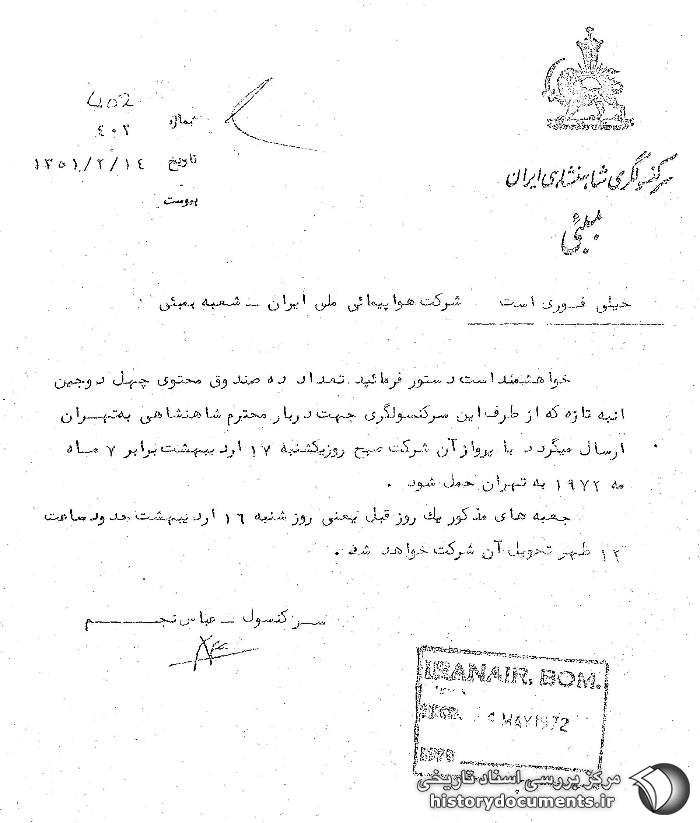 سرکنسولگری شاهنشاهی ایران
بمبئی
402
شماره ٤٠٢
تاریخ ١٣٥١/٢/١٤
پیوست
خیلی فوری است شرکت هواپیمائی ملی ایران ـ شعبه بمبئی
خواهشمند است دستور فرمائید تعداد ده صندوق محتوی چهل دوجین
انبه تازه که از طرف این سرکنسولگری جهت دربار محترم شاهنشاهی به تهران
ارسال میگردد با پرواز آن شرکت صبح روز یکشنبه ١٧ اردیبهشت برابر ٧ ماه
مه ١٩٧٢ به تهران حمل شود .
جعبه های مذکور یك روز قبل یعنی روز شنبه ١٦ اردیبهشت حدود ساعت
١٢ ظهر تحویل آن شرکت خواهد شد .
سرکنسول ـ عباس نجم
IRANAIR, BOM.
MAY 1972
مرکز بررسی اسناد تاریخی
historydocuments.ir